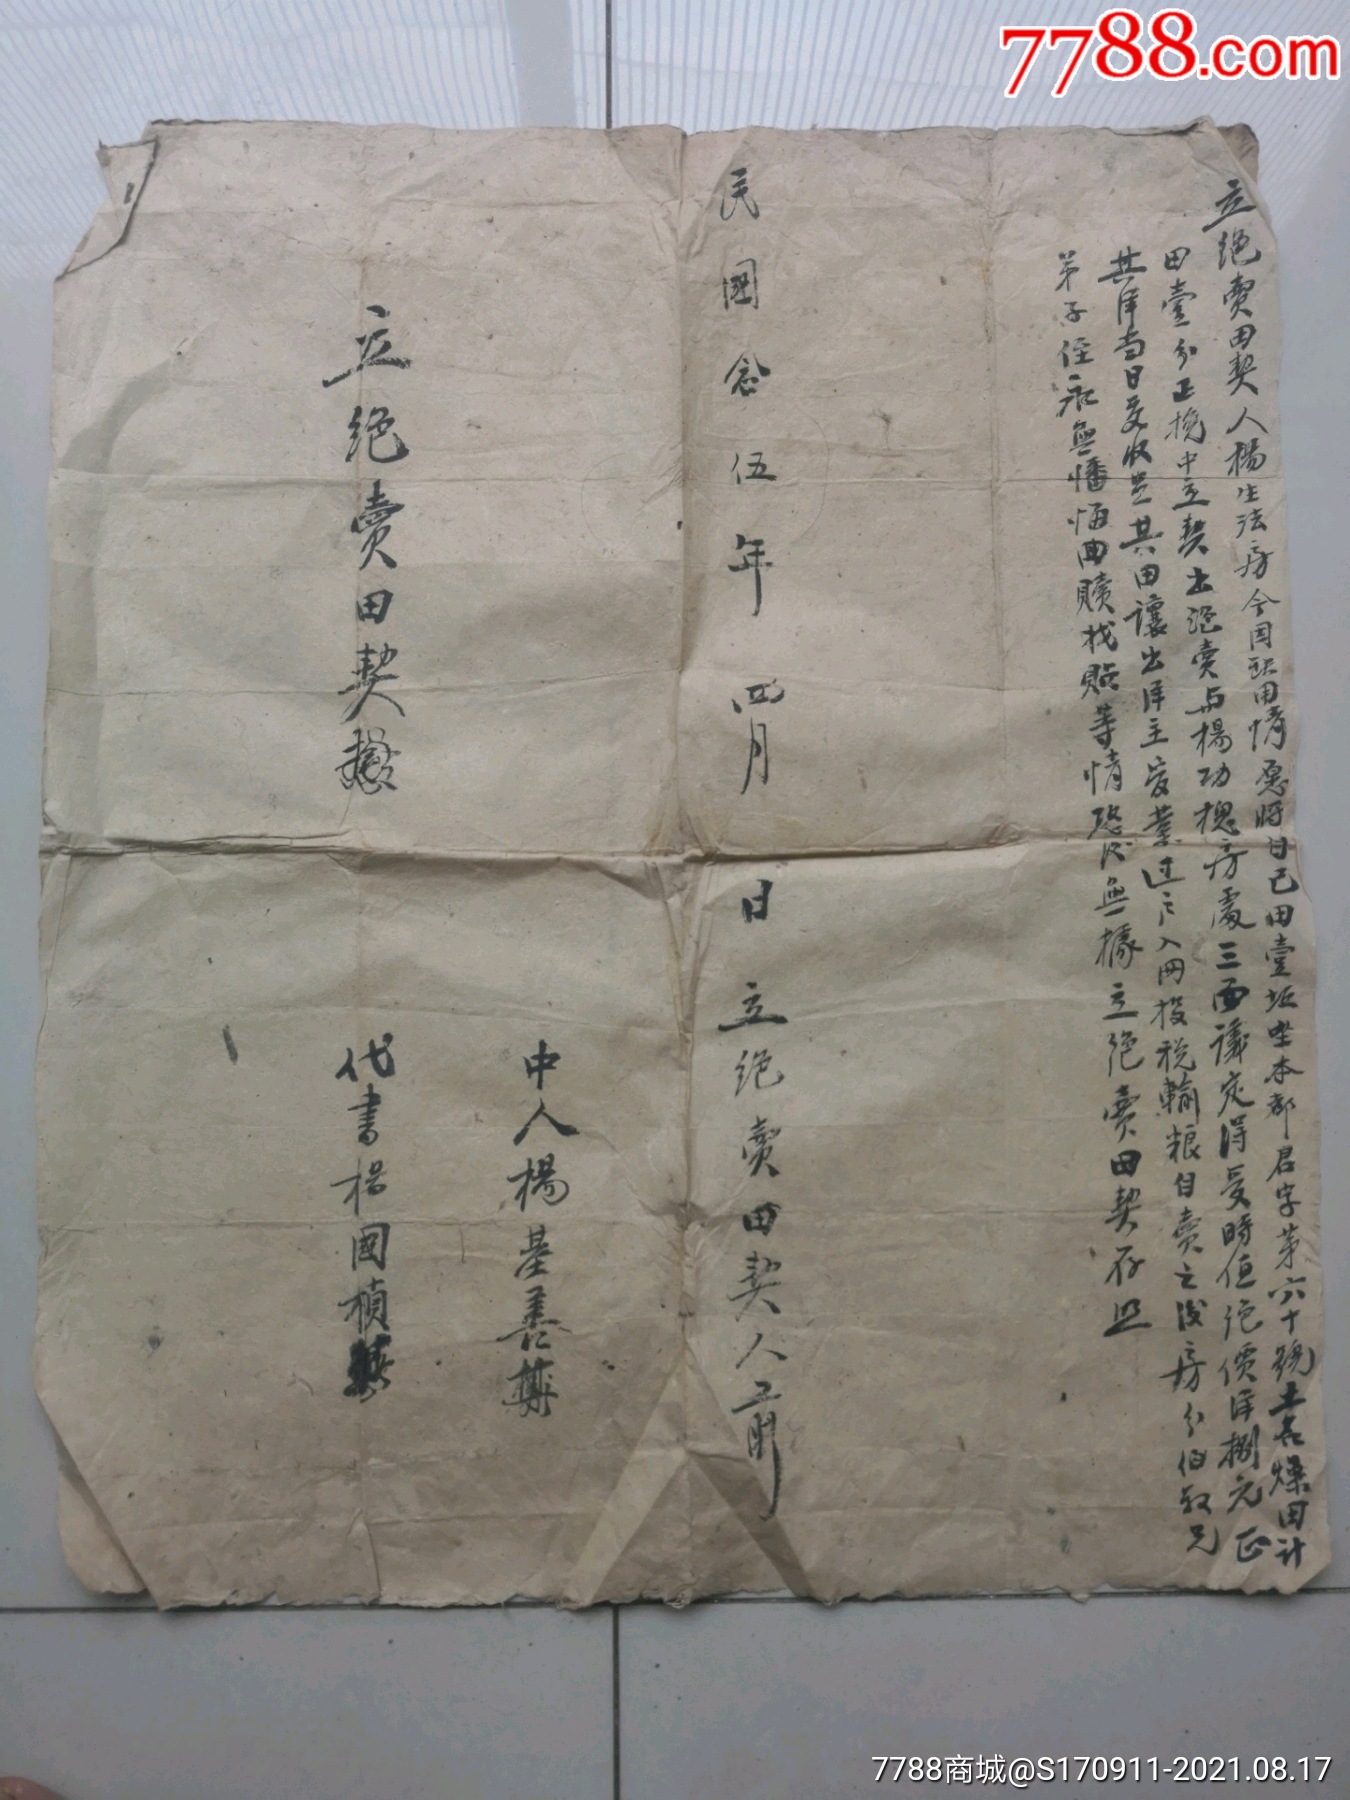 7788.com
立絶賣田契人楊生法房今因缺用情愿將自己田壹坵坐本都君字苐六十號土名燥田計
田壹分正挽中立契出絶賣与楊功槐房處三面議定得受時值絶價洋捌元正
其洋當日交收其田讓出洋主管業过户入冊投税輸粮自賣之後房分伯叔兄
苐子侄永無憣悔回贖找貼等情恐後無據立絶賣田契存照
民國念伍年四月日立絶賣田契人前
中人楊基善
代書楊國楨
立絶賣田契
7788商城@S170911-2021.08.17